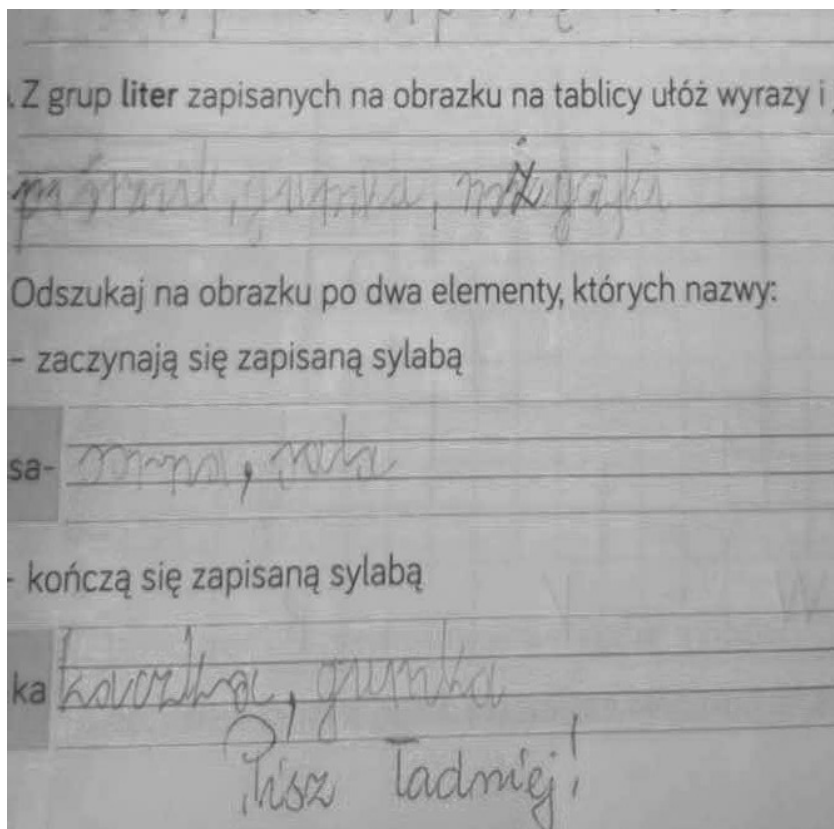 . Z grup liter zapisanych na obrazku na tablicy ułóż wyrazy i
piórnik, gumka, nożyczki
Odszukaj na obrazku po dwa elementy, których nazwy:
– zaczynają się zapisaną sylabą
sa- sanna, sala
- kończą się zapisaną sylabą
ka kaczka, gumka
Pisz ładniej!